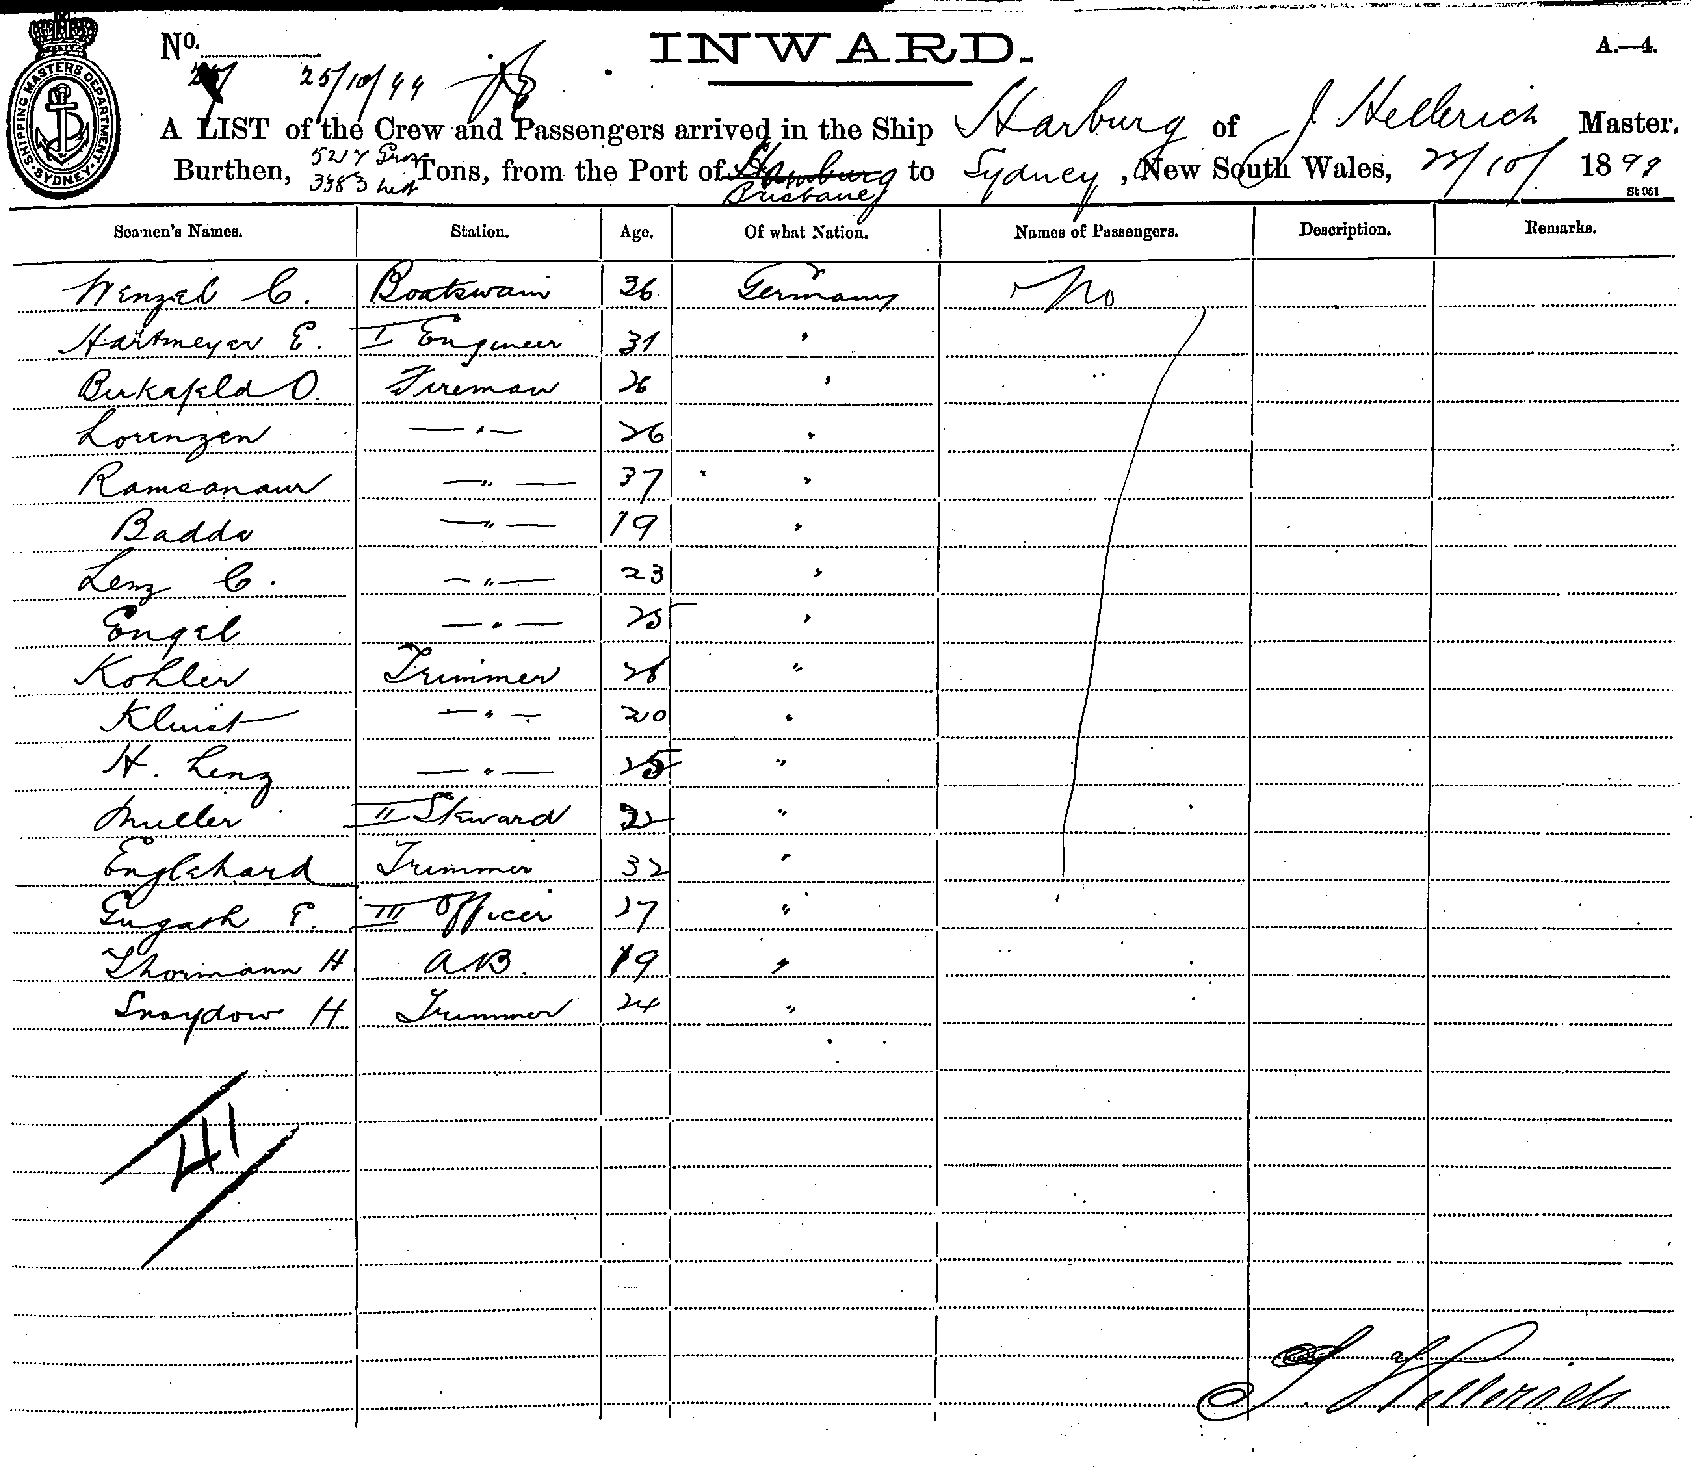 SHIPPING MASTERS DEPARTMENT
SYDNEY
No.
INWARD.
A.—4.
25/10/99
A LIST of the Crew and Passengers arrived in the Ship Harburg of J Hellerich Master.
Burthen, Gross 3983 nett Tons, from the Port of Hamburg Brisbane to Sydney, New South Wales, 22/10/ 1899
St 061
Seamen's Names. Station. Age. Of what Nation. Names of Passengers. Description. Remarks.
Wenzel C. Boatswain 36 Germany No
Hartmeyer E. I Engineer 31 "
Birkefeld O. Fireman 26 "
Lorenzen —"— 26 "
—"— 37 "
Badde —"— 19 "
Lenz C. —"— 23 "
Engel —"— 25 "
Kohler Trimmer 28 "
—"— 20 "
H. Lenz —"— 25 "
Muller II Steward 22 "
Englehard Trimmer 32 "
III Officer 27 "
Thormann H A.B. 19 "
Snaydow H Trimmer 24 "
41
J. Hellerich